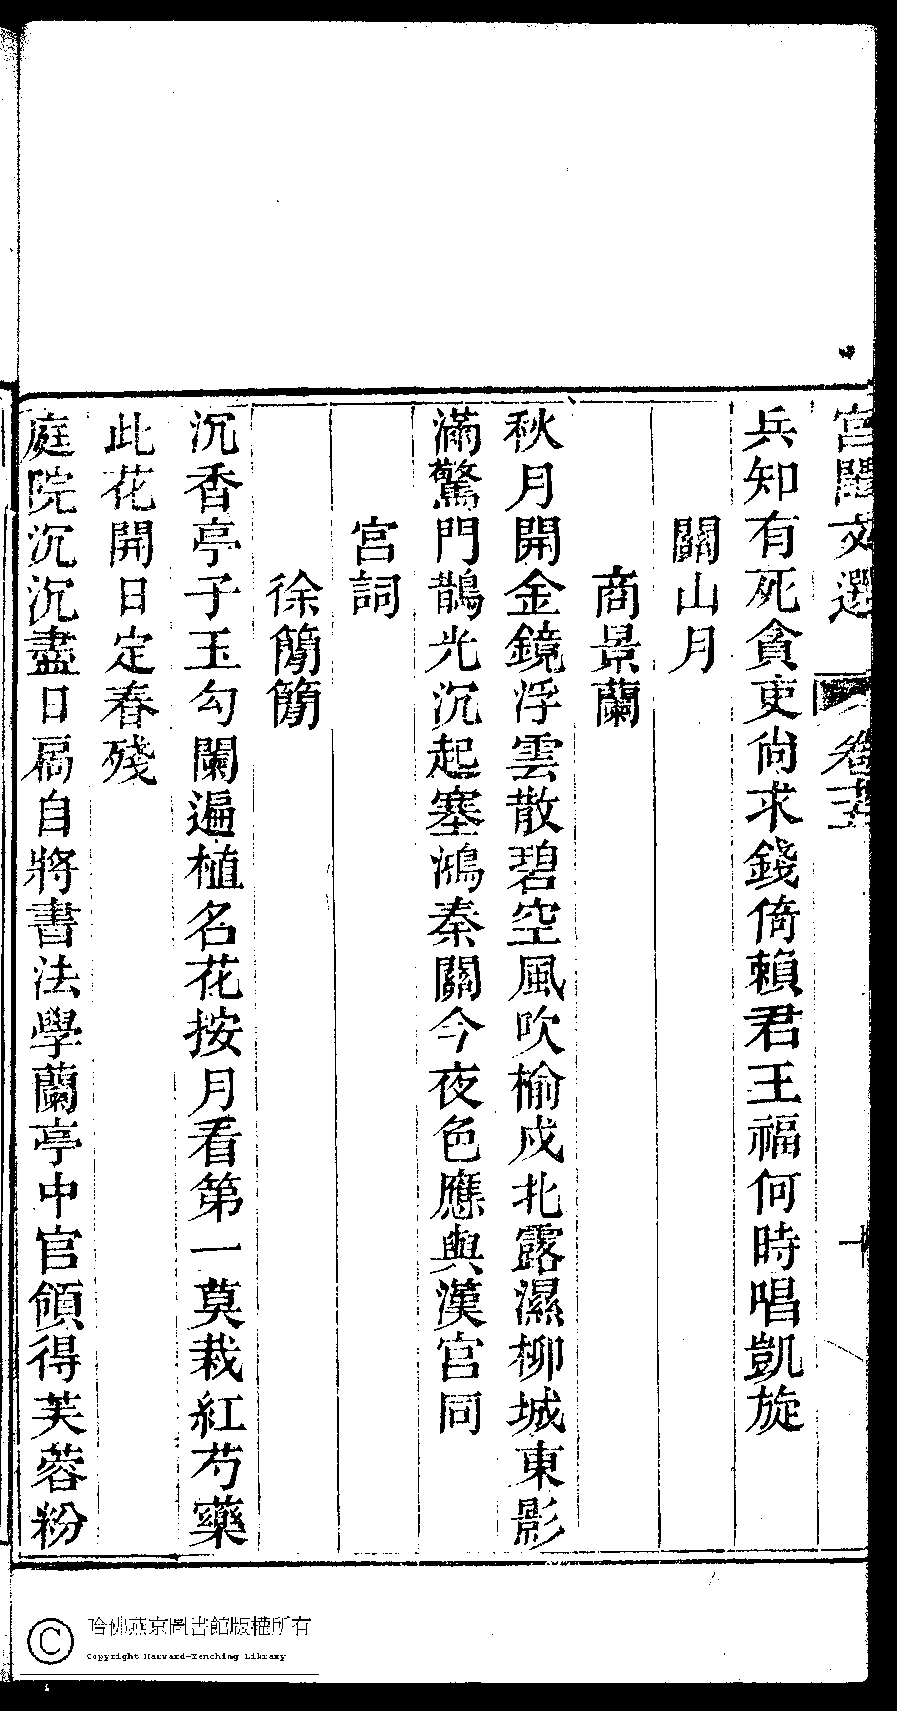 宮閨文選 卷十五 十
兵知有死貪吏尙求錢倚賴君王福何時唱凱旋
關山月
商景蘭
秋月開金鏡浮雲散碧空風吹榆戍北露濕柳城東影
滿驚門鵲光沉起塞鴻秦關今夜色應與漢宮同
宮詞
徐簡簡
沉香亭子玉勾闌遍植名花按月看第一莫栽紅芍藥
此花開日定春殘
庭院沉沉盡日扃自將書法學蘭亭中官領得芙蓉粉
哈佛燕京圖書館版權所有
Copyright Harvard-Yenching Library